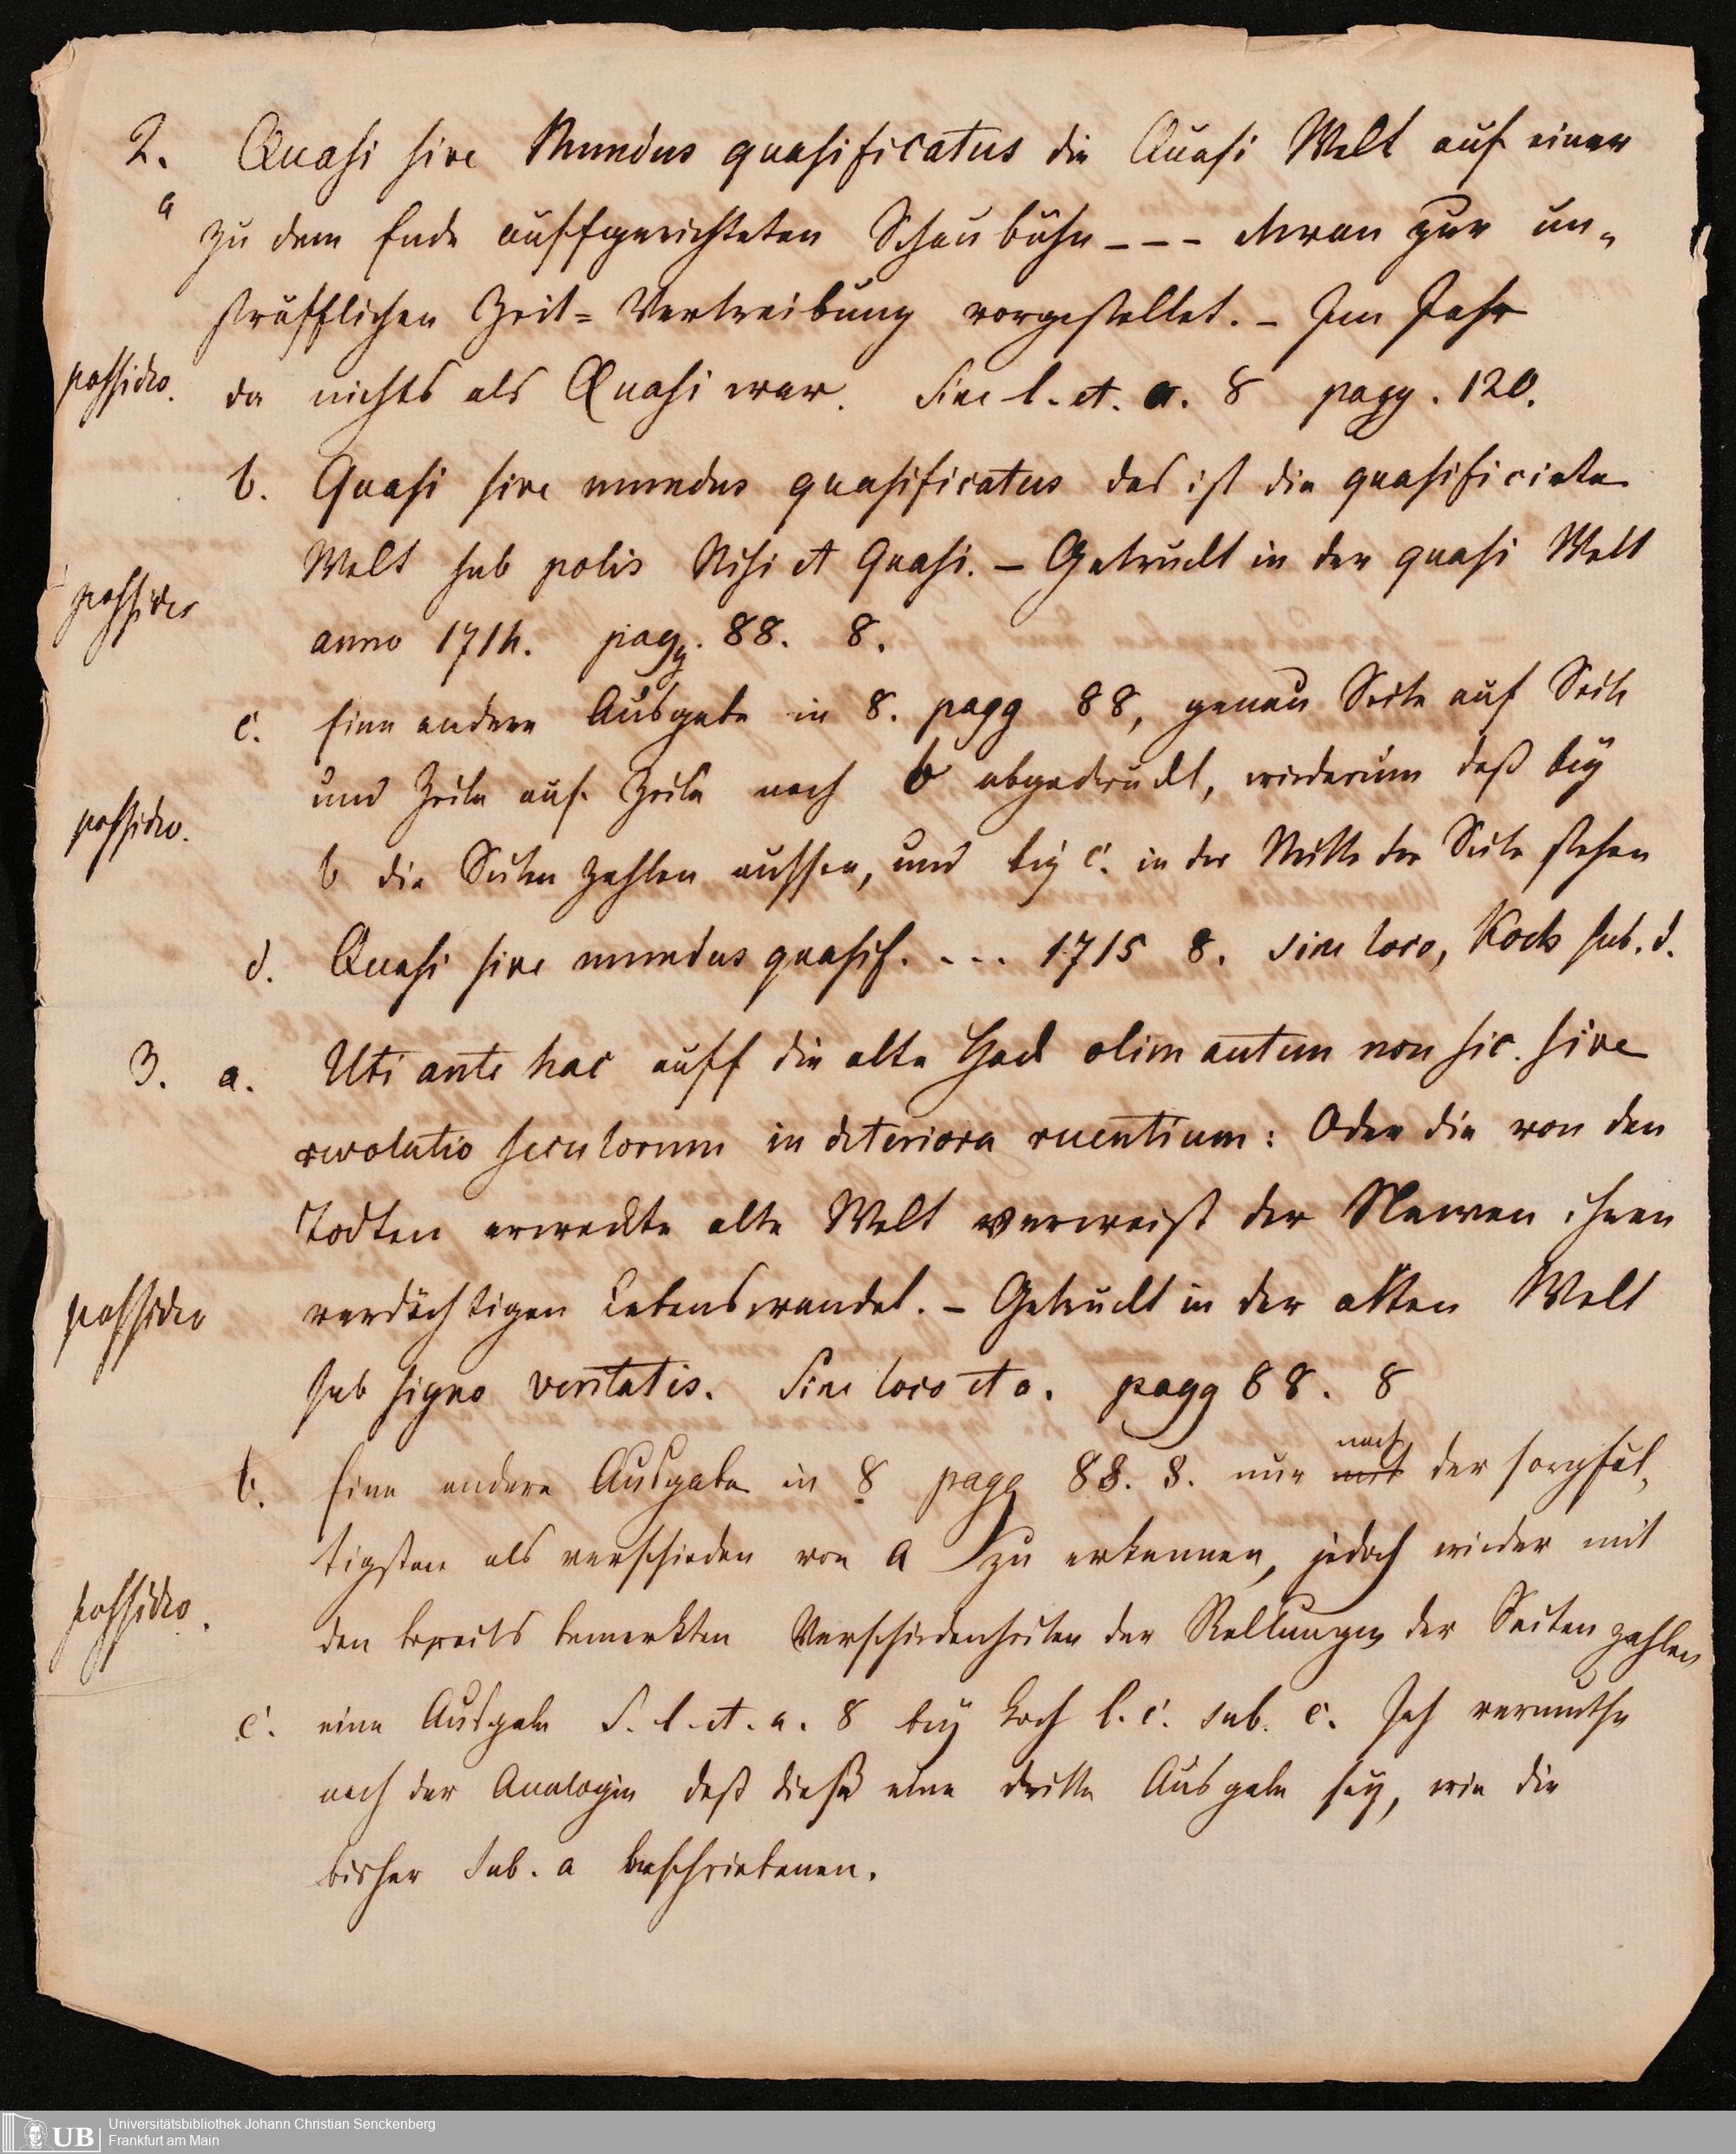 2. Quasi sive Mundus quasificatus die Quasi Welt auf einer
a zu dem Ende auffgerichteten Schaubühn --- zur un-
sträfflichen Zeit=Vertreibung vorgestellet. - Im Jahr
possideo. da nichts als Quasi war. Sine l. et. a. 8 pagg. 120.
b. Quasi sive mundus quasificatus das ist die quasificirte
Welt sub polis Nisi et Quasi. - Getruckt in der quasi Welt
possideo anno 1714. pagg. 88. 8.
c. Eine andere Ausgabe in 8. pagg 88, genau Seite auf Seite
und Zeile auf Zeile nach b abgedruckt, wiederum daß bey
possideo. b die Seiten zahlen aussen, und bey c. in der Mitte der Seite stehen
d. Quasi sive mundus quasif. ... 1715 8. sine loco, Koch sub. d.
3. a. Uti ante hac auff die alte Hack olim autem non sic. sive
revolutio seculorum in deteriora ruentium: Oder die von den
Todten erweckte alte Welt verweist der Newen ihren
possideo verdächtigen Lebenswandel. - Getruckt in der alten Welt
sub signo veritatis. Sine loco et a. pagg 88. 8
b. Eine andere Ausgabe in 8 pagg 88. 8. nur nach der sorgfäl-
tigsten als verschieden von a zu erkennen, jedoch wieder mit
possideo. den bereits bemerkten Verschiedenheiten der Stellungen der Seiten zahlen
c. eine Ausgabe S. l. et. a. 8 bey Koch l. c. sub. c. Ich vermuthe
nach der Analogie daß dieß eine dritte Ausgabe sey, wie die
bisher sub. a beschriebenen.
UB Universitätsbibliothek Johann Christian Senckenberg
Frankfurt am Main